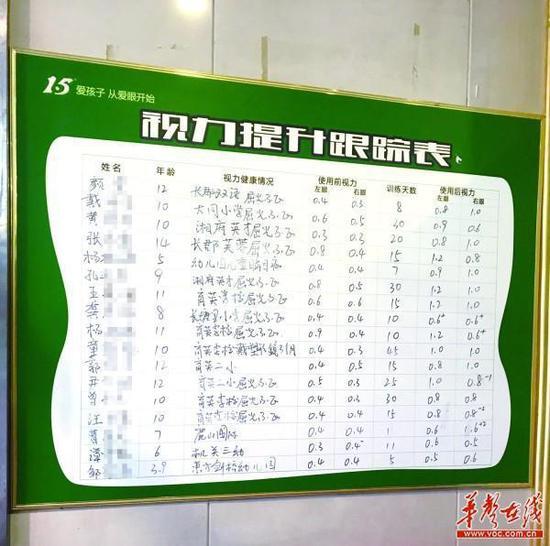 1.5 爱孩子 从爱眼开始
视力提升跟踪表
姓名 年龄 视力健康情况 使用前视力 左眼 右眼 训练天数 使用后视力 左眼 右眼
颜 12 长郡双语 屈光不正 0.4 0.3 8 0.8 1.0
戴 10 大同小学屈光不正 0.6 0.5 0.9 0.6
黄 10 湘府英才屈光不正 0.3 0.3 20 0.8 1.0
张 14 长郡芙蓉屈光不正 0.8 0.4 15 1.2 0.8
杨 5 幼儿园 0.4 0.4 7 0.9 1.0
孔 9 湘府英才屈光不正 0.8 0.5 30 1.2 1.0
孟 11 育英学校屈光不正 0.6 0.6 15 1.2 1.0
龚 8 小学屈光不正 0.4 0.4 10 0.6⁺ 0.6
杨 11 育英学校屈光不正 0.9 0.4 10 1.2 0.6⁺
童 10 育英学校 0.4 0.3 45 1.0 1.0
郭 12 育英二小 0.4 0.4 15 0.8 1.0
尹 12 育英二小屈光不正 0.5 0.3 25 1.0 0.8⁻¹
曾 10 育英学校屈光不正 0.4 0.3 30 0.8 0.8
汪 10 育英学校屈光不正 0.4 0.4 15 0.8 0.8⁻²
7 麓山国际 0.4 0.4 1 0.6
谭 6 机关三幼 0.3 0.4⁻ 11 0.6 0.5
邹 3.9 东方剑桥幼儿园 0.4 0.4 5 0.5 0.6
华声在线
www.voc.com.cn